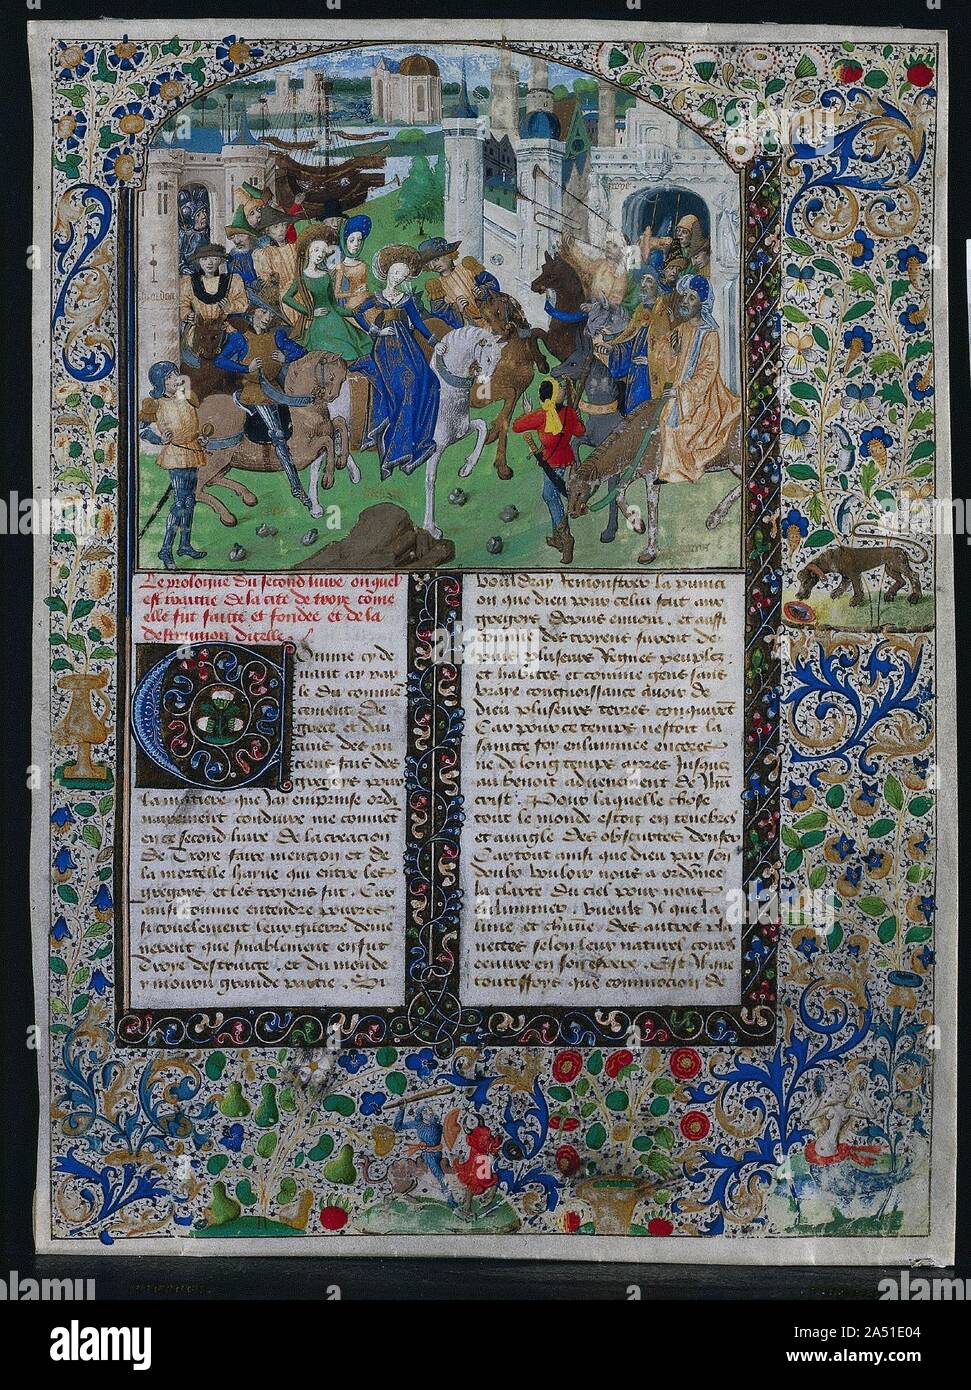 troye
Le prologue du second livre ou quel
est traittie de la cite de troye come
elle fut faitte et fondee et de la
destruction dicelle.
Comme cy de
uant ay par
le du comme
cement de
grece et d
ciens des au
ciens fais des
gregois pour
la matiere que jay emprinse ordi
nairement conduire me convient
en ce second livre de la creacion
de Troye faire mencion et de
la mortelle hayne qui entre les
gregois et les troyens fut. Car
ainsi comme entendre pourres
si cruelement leur guerre deme
nerent que finablement en fut
Troye destruicte. et du monde
y mourut grande partie. Si
vouldray remonstrer la punici
on que dieu pour celui fait aux
gregois depuis envoia. et aussi
comme des troyens furent de
puis pluseurs regnes peuplez
et habites et comme gens sans
vraye congnoissance avoir de
dieu pluseurs terres conquirent
Car pour ce temps nestoit la
saincte foy enluminee encores
ne de long temps apres jusquez
au benoit advenement de Jhu
crist. Pour laquelle chose
tout le monde estoit en tenebres
et avugle des obscurtes denfer
Car tout ainsi que dieu par son
doulz vouloir nous a ordonne
la clarte du ciel pour nous
alluminer. Veult il que la
lune et chascune des autres pla
nettes selon leur naturel cours
euvre en son espere. Est il que
touteffoys que commocion de
a
alamy
alamy stock photo
2A51E04
www.alamy.com